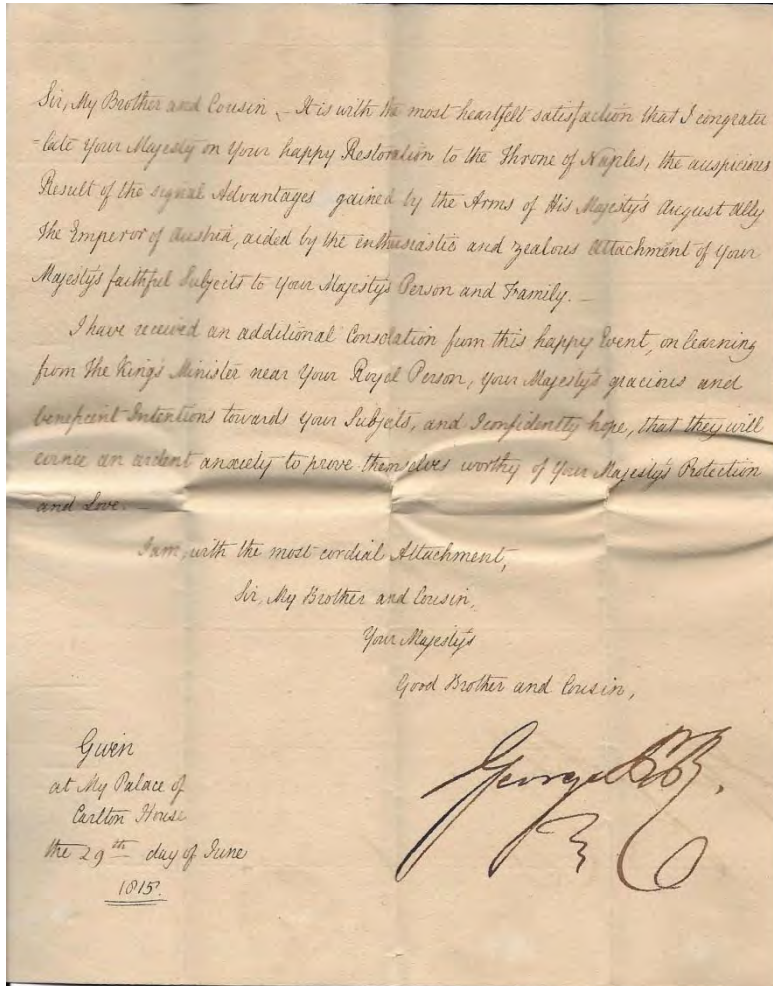 Sir, My Brother and Cousin, – It is with the most heartfelt satisfaction that I congratu
-late Your Majesty on Your happy Restoration to the Throne of Naples, the auspicious
Result of the signal Advantages gained by the Arms of His Majesty's August Ally
The Emperor of Austria, aided by the enthusiastic and zealous Attachment of Your
Majesty's faithful Subjects to Your Majesty's Person and Family. –
I have received an additional Consolation from this happy Event, on learning
from The King's Minister near Your Royal Person, Your Majesty's gracious and
beneficent Intentions towards Your Subjects, and I confidently hope, that they will
evince an ardent anxiety to prove themselves worthy of Your Majesty's Protection
and Love. –
I am, with the most cordial Attachment,
Sir, My Brother and Cousin,
Your Majesty's
Good Brother and Cousin,
George P R.
Given
at My Palace of
Carlton House
the 29th day of June
1815.